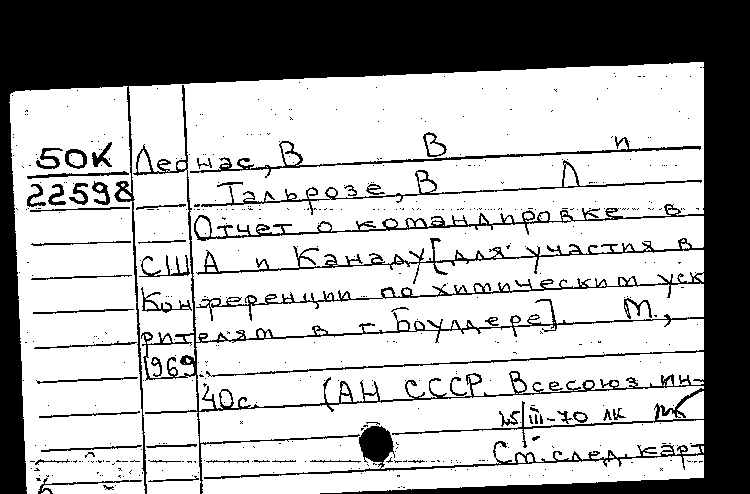 50К Леонас, В В и
22598 Тальрозе, В Л
Отчет о командировке в
США и Канаду [для участия в
Конференции по химическим уск
рителям в г. Боулдере]. М.,
1969.
40с. (АН СССР. Всесоюз. ин-
25/III-70 ЛК
См. след. карт